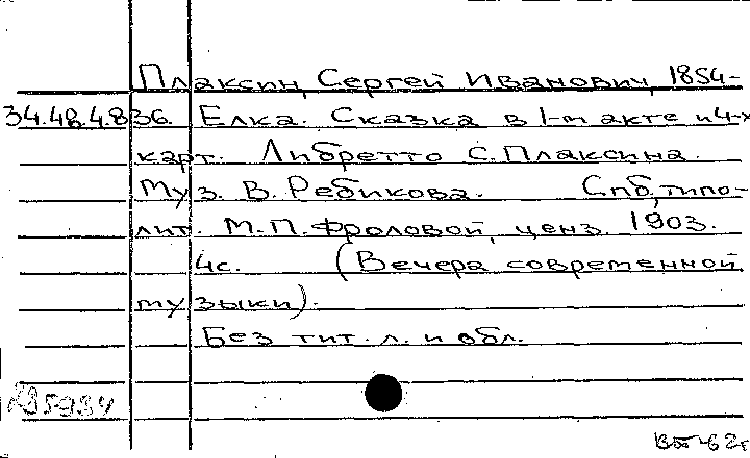 Плаксин, Сергей Иванович, 1854-
34.48.4.836. Елка. Сказка в 1-м акте и 4-х
карт. Либретто С. Плаксина.
Муз. В. Ребикова. Спб, типо-
лит. М.П. Фроловой, ценз. 1903.
4с. (Вечера современной
музыки).
Без тит. л. и обл.